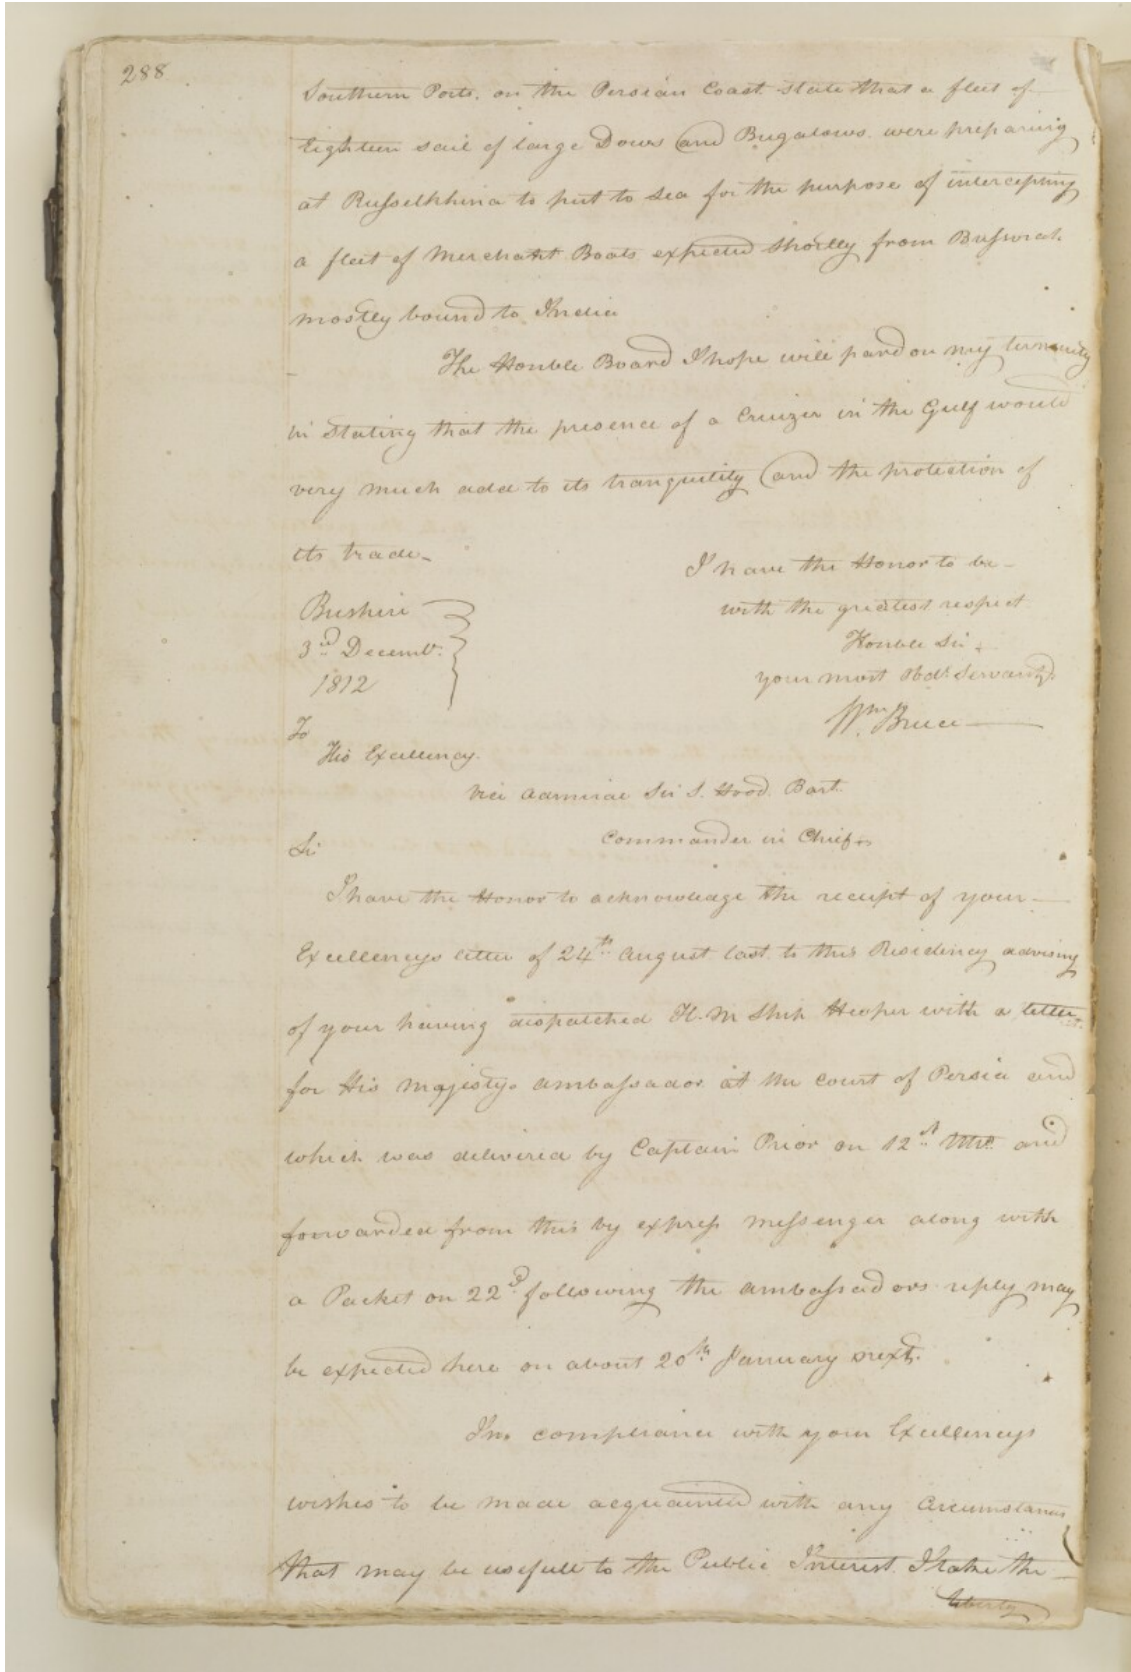 288
Southern Ports, on the Persian Coast state that a fleet of
Eighteen sail of large Dows and Bugalows were preparing
at Russelkhina to put to sea for the purpose of intercepting
a fleet of Merchant Boats expected shortly from Bussorah
mostly bound to India
The Honble Board I hope will pardon my temerity
in stating that the presence of a Cruizer in the Gulf would
very much add to its tranquility and the protection of
its trade_
I have the Honor to be_
with the greatest respect
Honble Sir
your most Obdt Servant
Wm Bruce
Bushire
3rd Decembr.
1812
To
His Excellency.
Vice Admiral Sir S. Hood Bart.
Commander in Chief
Sir
I have the Honor to acknowledge the receipt of your
Excellencys letter of 24th August last to this Residency advising
of your having dispatched H. M Ship Hesper with a letter
for His Majestys Ambassador at the court of Persia and
which was delivered by Captain Prior on 12th Ulto and
forwarded from this by express messenger along with
a Packet on 22d following the ambassadors reply may
be expected here on about 20th January next.
In compliance with your Excellencys
wishes to be made acquainted with any Circumstances
that may be usefull to the Public Interest I take the
liberty